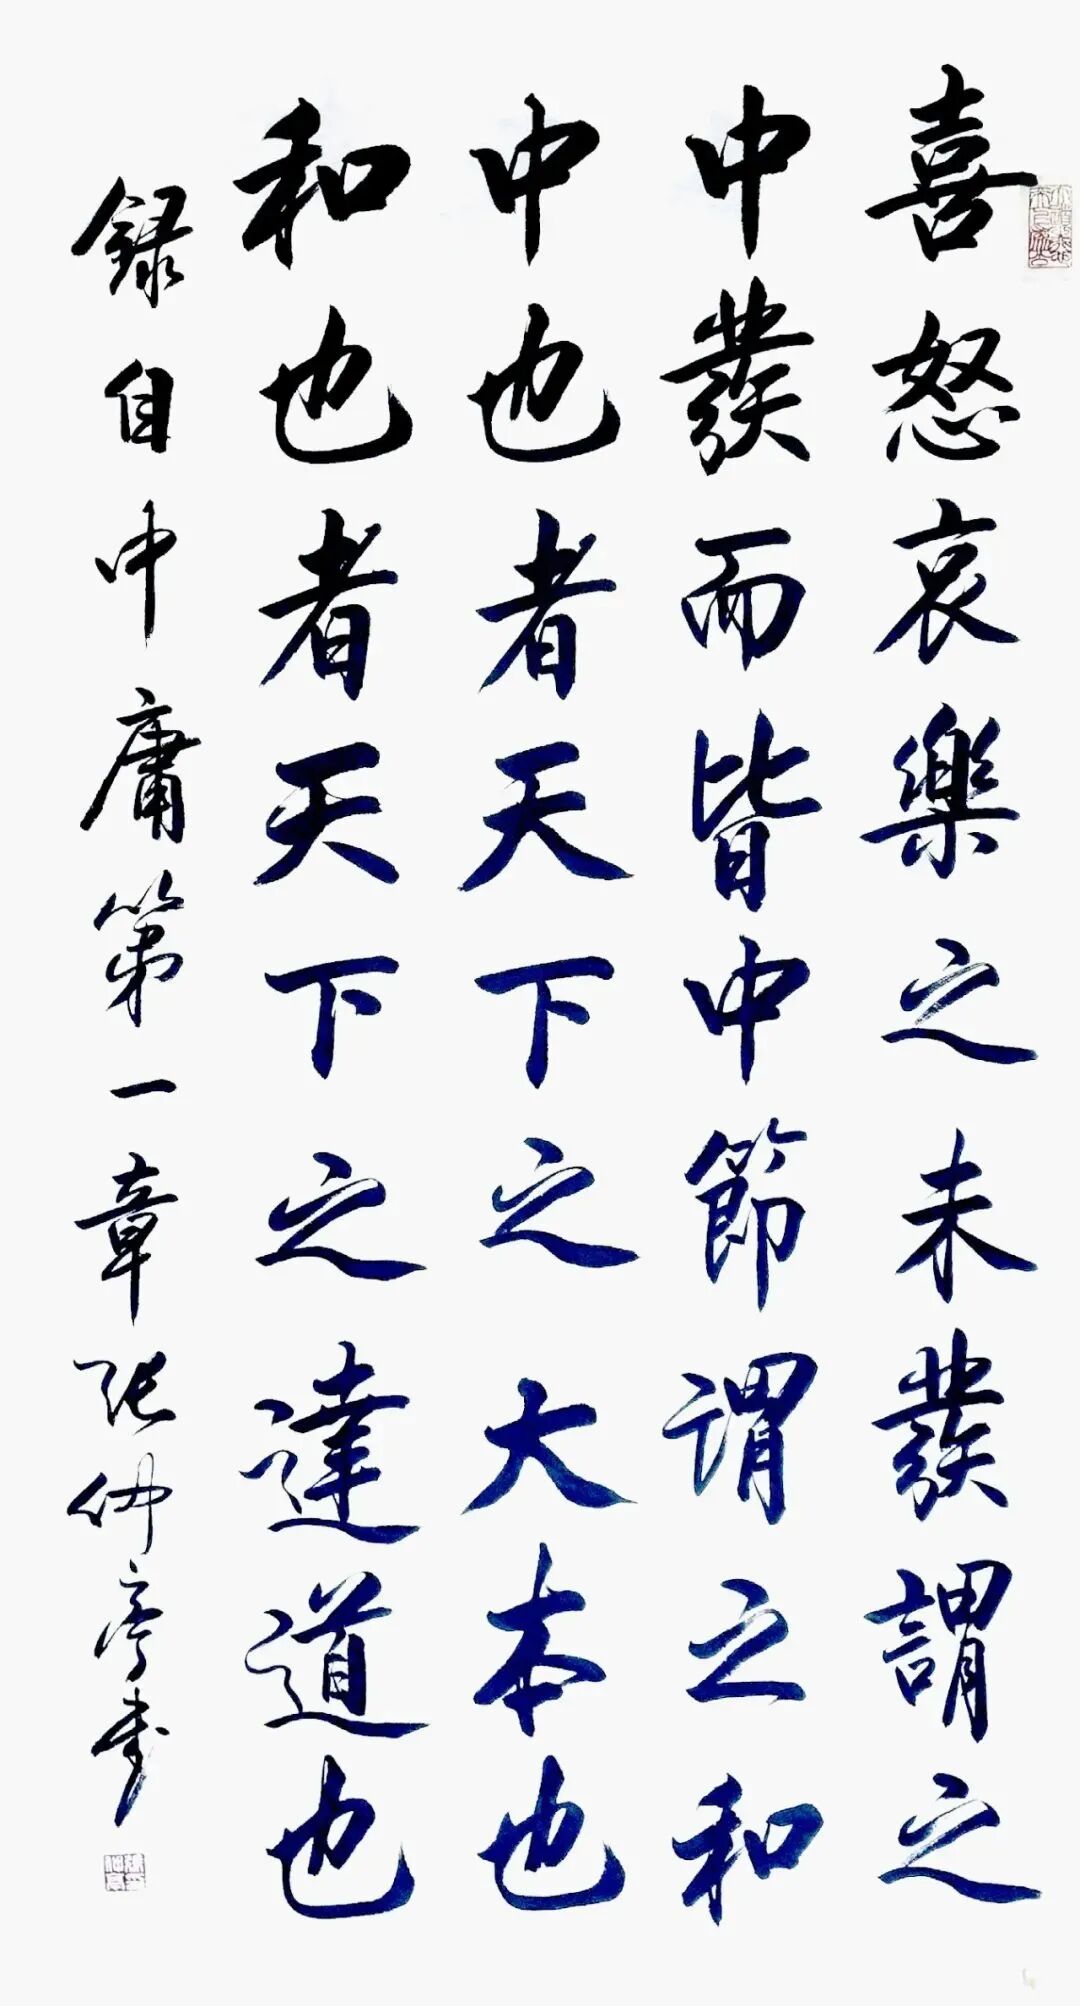 喜怒哀樂之未發謂之
中發而皆中節謂之和
中也者天下之大本也
和也者天下之達道也
錄自中庸第一章張仲亭書